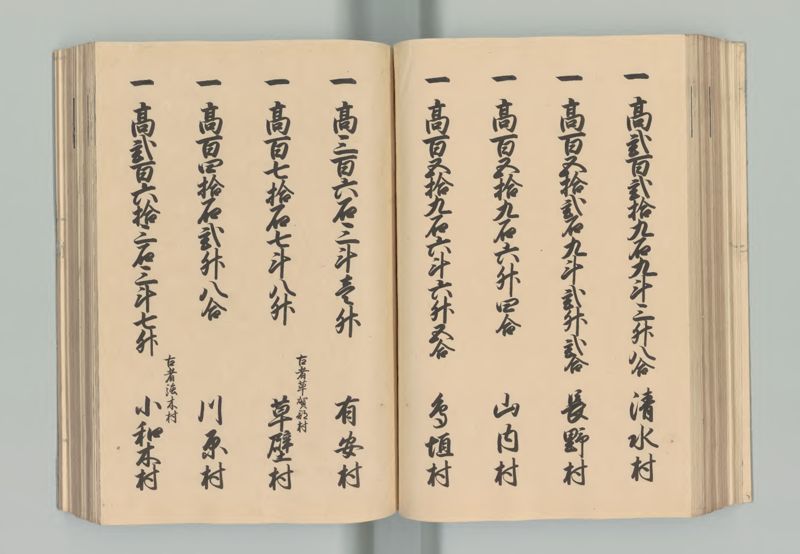 一 高弐百弐拾九石九斗三升八合 清水村
一 高百五拾弐石九斗弐升弐合 長野村
一 高百五拾九石六升四合 山内村
一 高百五拾九石六斗六升五合 鳥垣村
一 高三百六石三斗壱升 有安村
古者草賀部村
一 高百七拾石七斗八升 草壁村
一 高百四拾石弐升八合 川原村
古者 木村
一 高弐百六拾三石三斗七升 小和木村